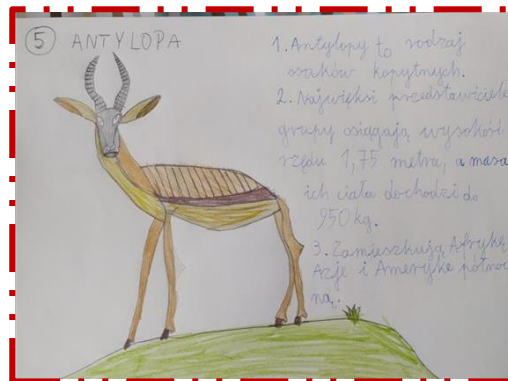 5 ANTYLOPA
1. Antylopy to rodzaj
ssaków kopytnych.
2. Najwięksi przedstawiciele
grupy osiągają wysokość
rzędu 1,75 metra, a masa
ich ciała dochodzi do
950 kg.
3. Zamieszkują Afrykę,
Azję i Amerykę północ
ną.